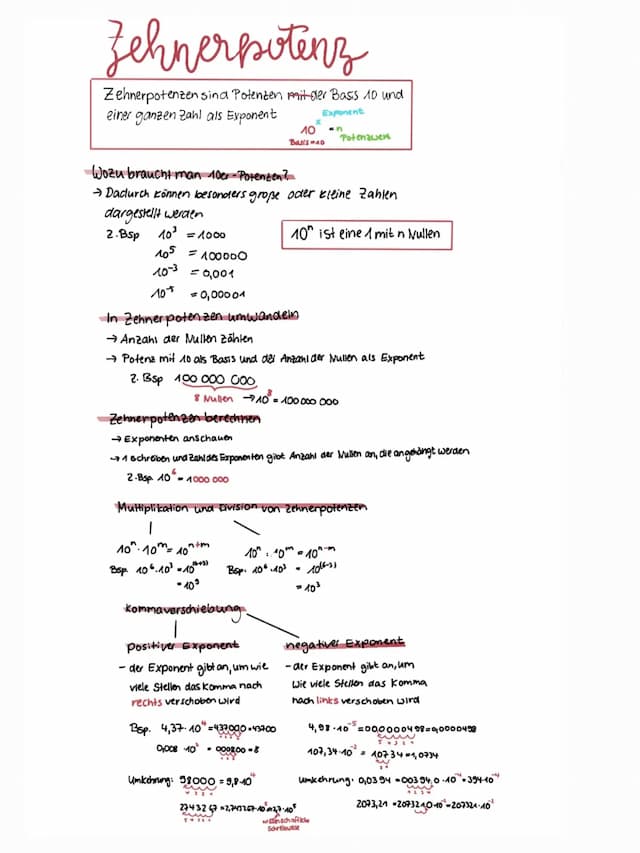 Zehnerpotenz
Zehnerpotenzen sind Potenzen mit der Basis 10 und
einer ganzen Zahl als Exponent
Exponent
10ˣ = n
Basis=10 Potenzwert
Wozu braucht man 10er-Potenzen?
→ Dadurch können besonders große oder kleine Zahlen
dargestellt werden
z.Bsp 10³ = 1000
10ⁿ ist eine 1 mit n Nullen
10⁵ = 100000
10⁻³ = 0,001
10⁻⁵ = 0,00001
In Zehnerpotenzen umwandeln
→ Anzahl der Nullen zählen
→ Potenz mit 10 als Basis und der Anzahl der Nullen als Exponent
z. Bsp 100 000 000
8 Nullen → 10⁸ = 100 000 000
Zehnerpotenzen berechnen
→ Exponenten anschauen
→ 1 schreiben und Zahl des Exponenten gibt Anzahl der Nullen an, die angehängt werden
z.Bsp. 10⁶ = 1000 000
Multiplikation und Division von Zehnerpotenzen
10ⁿ · 10ᵐ = 10ⁿ⁺ᵐ 10ⁿ : 10ᵐ = 10ⁿ⁻ᵐ
Bsp. 10⁶ · 10³ = 10⁽⁶⁺³⁾ Bsp. 10⁶ · 10³ = 10⁽⁶⁻³⁾
= 10⁹ = 10³
Kommaverschiebung
positiver Exponent
- der Exponent gibt an, um wie
viele Stellen das Komma nach
rechts verschoben wird
Bsp. 4,37 · 10⁴ = 437000 = 43700
0,008 · 10³ = 000800 = 8
Umkehrung: 98000 = 9,8 · 10⁴
negativer Exponent
- der Exponent gibt an, um
wie viele Stellen das Komma
nach links verschoben wird
4,98 · 10⁻⁵ = 00,0000498 = 0,0000498
107,34 · 10⁻² = 10734 = 1,0734
Umkehrung: 0,0394 = 00394,0 · 10⁻⁴ = 394 · 10⁻⁴
2743267 = 2,743267 · 10⁶
wissenschaftliche
Schreibweise
2073,21 = 207321,0 · 10⁻² = 207321 · 10⁻²